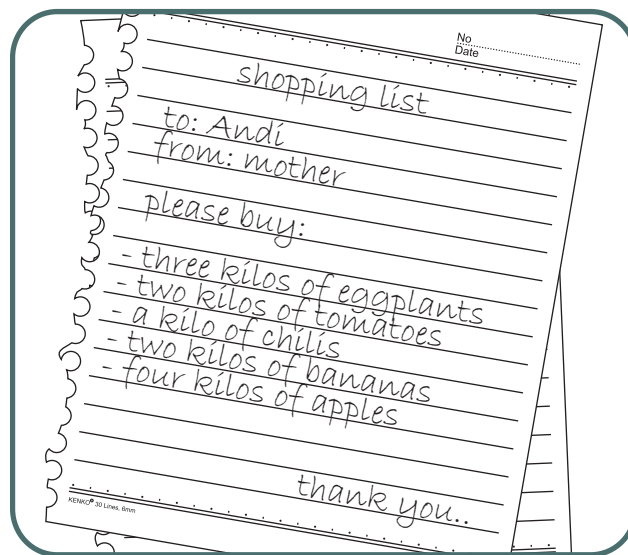 No
Date
shopping list
to: Andi
from: mother
please buy:
- three kilos of eggplants
- two kilos of tomatoes
- a kilo of chilis
- two kilos of bananas
- four kilos of apples
thank you..
KENKO® 30 Lines, 6mm